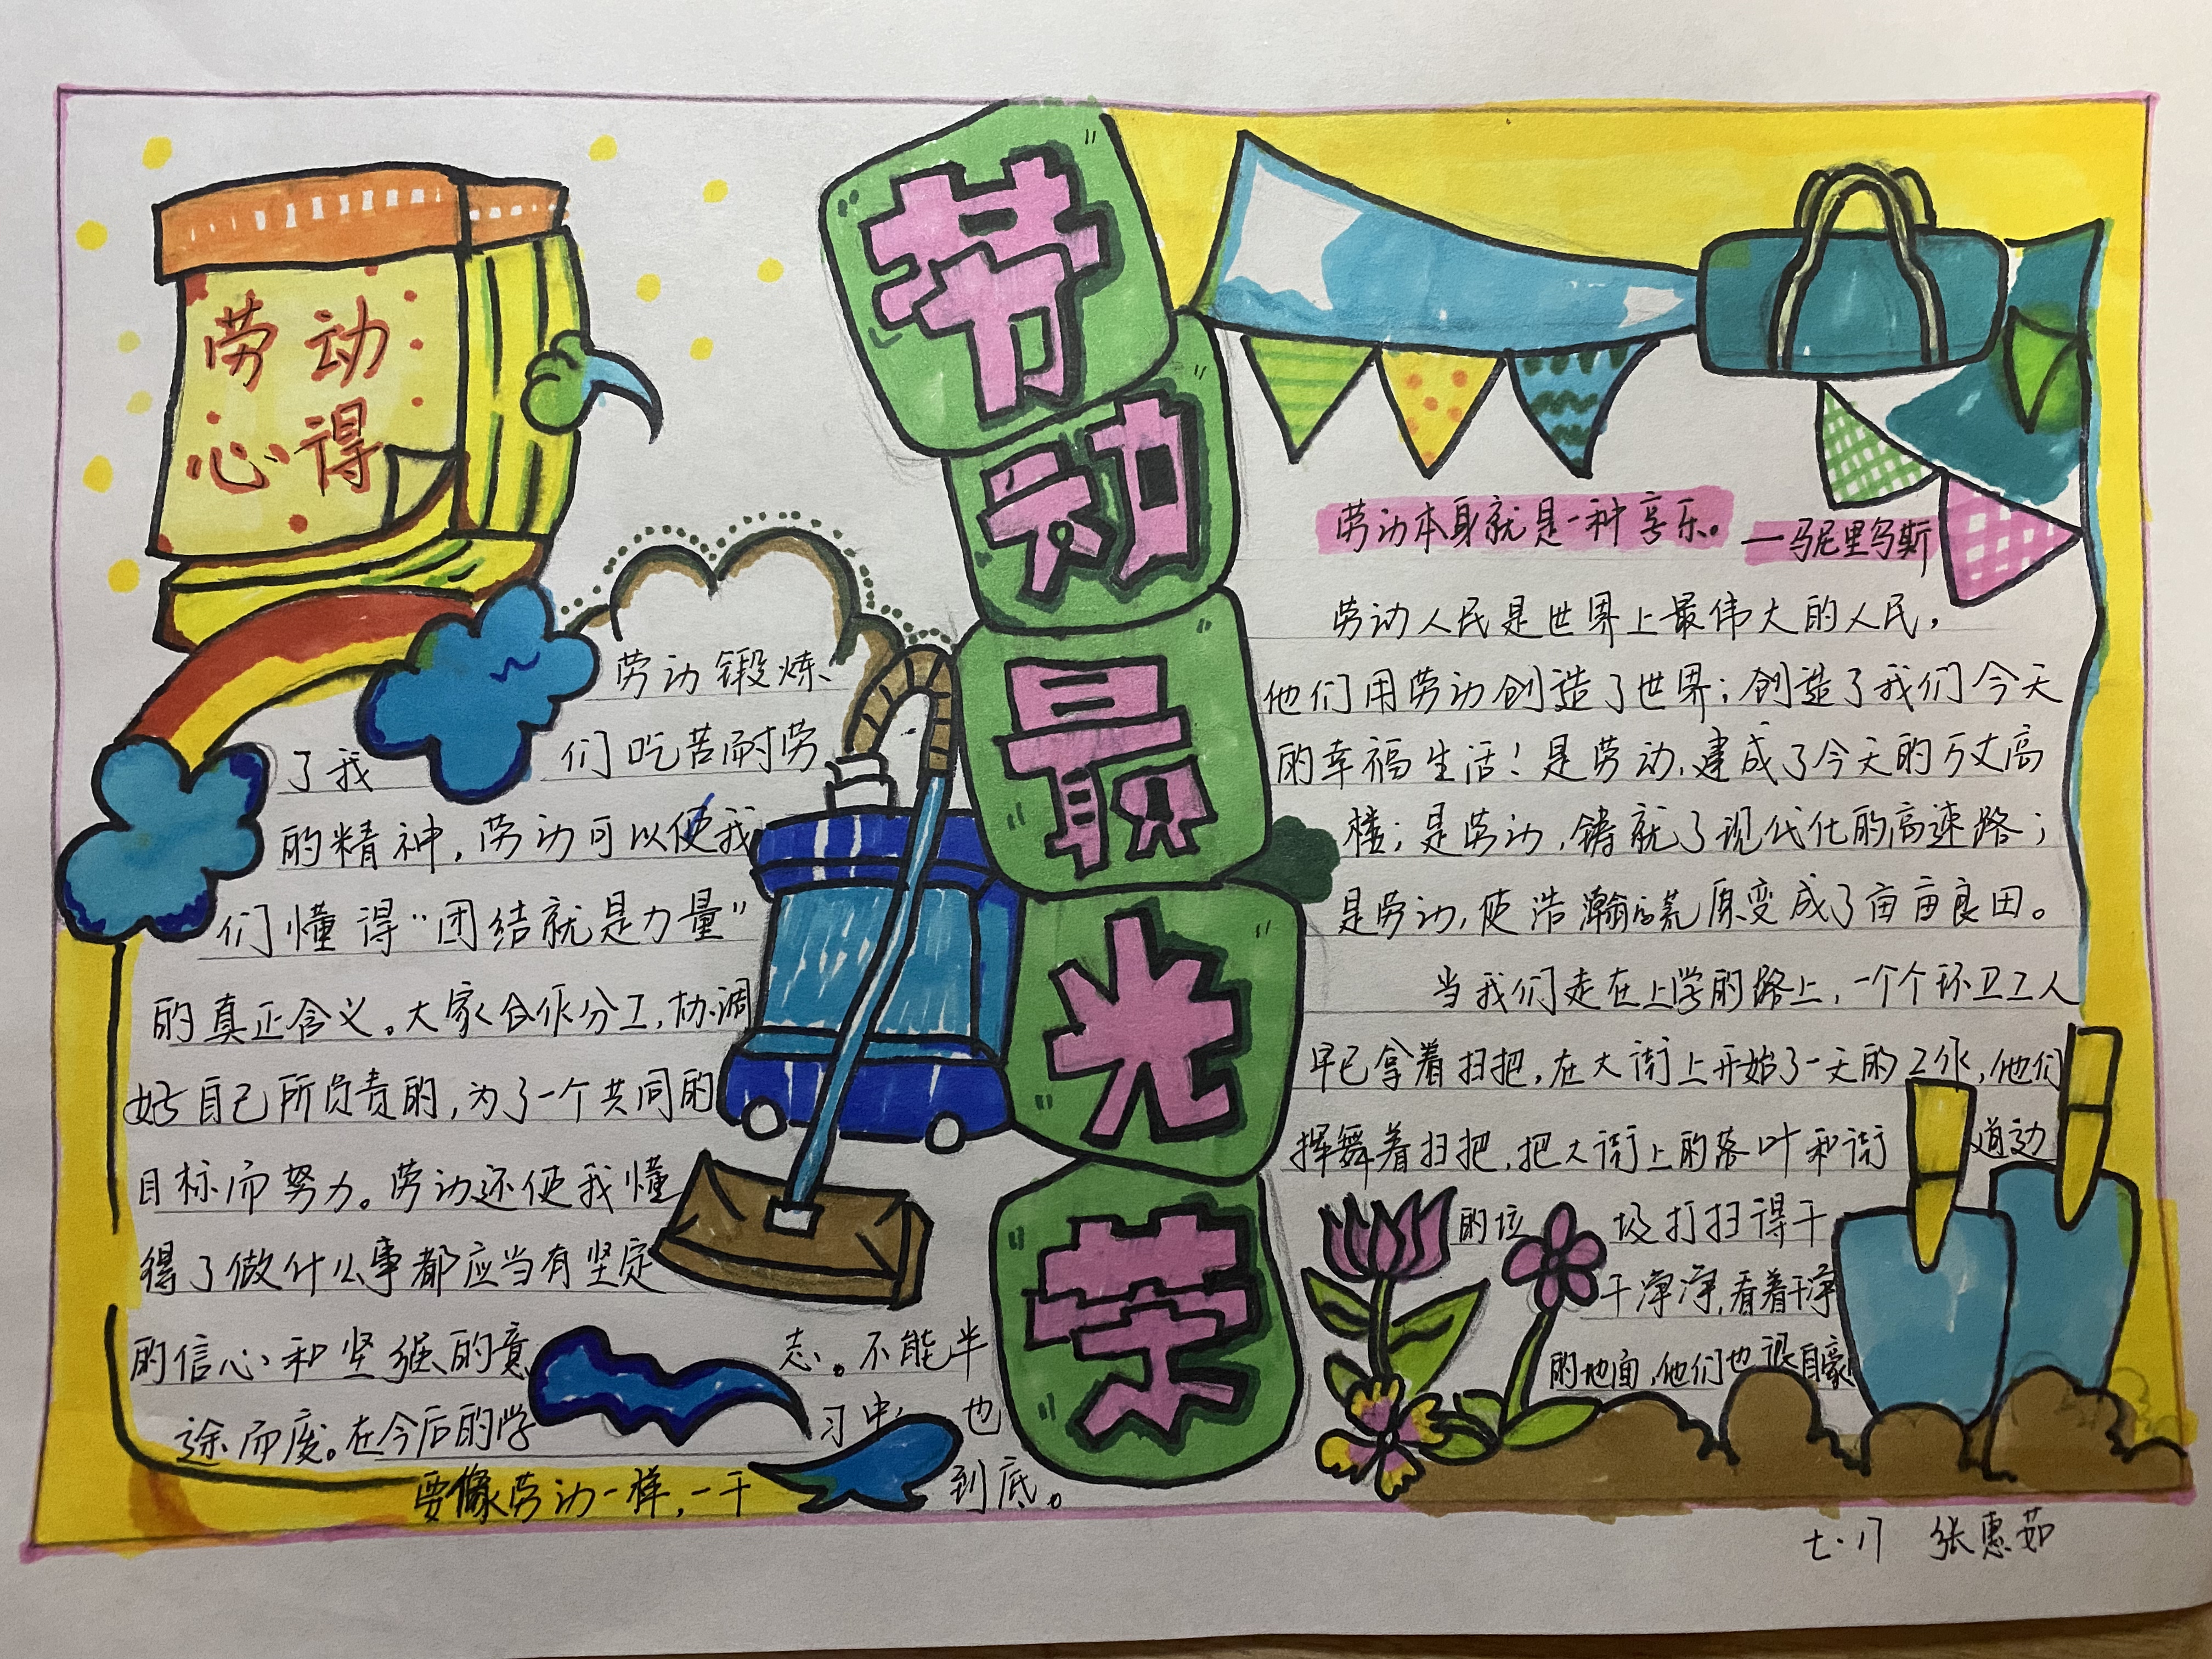 劳动最光荣
劳动
心得
劳动锻炼
了我们吃苦耐劳
的精神，劳动可以使我
们懂得“团结就是力量”
的真正含义。大家合作分工，协调
好自己所负责的，为了一个共同的
目标而努力。劳动还使我懂
得了做什么事都应当有坚定
的信心和坚强的意志。不能半
途而废。在今后的学习中也
要像劳动一样，一干到底。
劳动本身就是一种享乐。
—马尼里乌斯
劳动人民是世界上最伟大的人民，
他们用劳动创造了世界；创造了我们今天
的幸福生活！是劳动，建成了今天的万丈高
楼；是劳动，铸就了现代化的高速路；
是劳动，使浩瀚的荒原变成了亩亩良田。
当我们走在上学的路上，一个个环卫工人
早已拿着扫把，在大街上开始了一天的工作，他们
挥舞着扫把，把大街上的落叶和街道边
的垃圾打扫得干
干净净，看着干净
的地面，他们也很自豪！
张惠茹